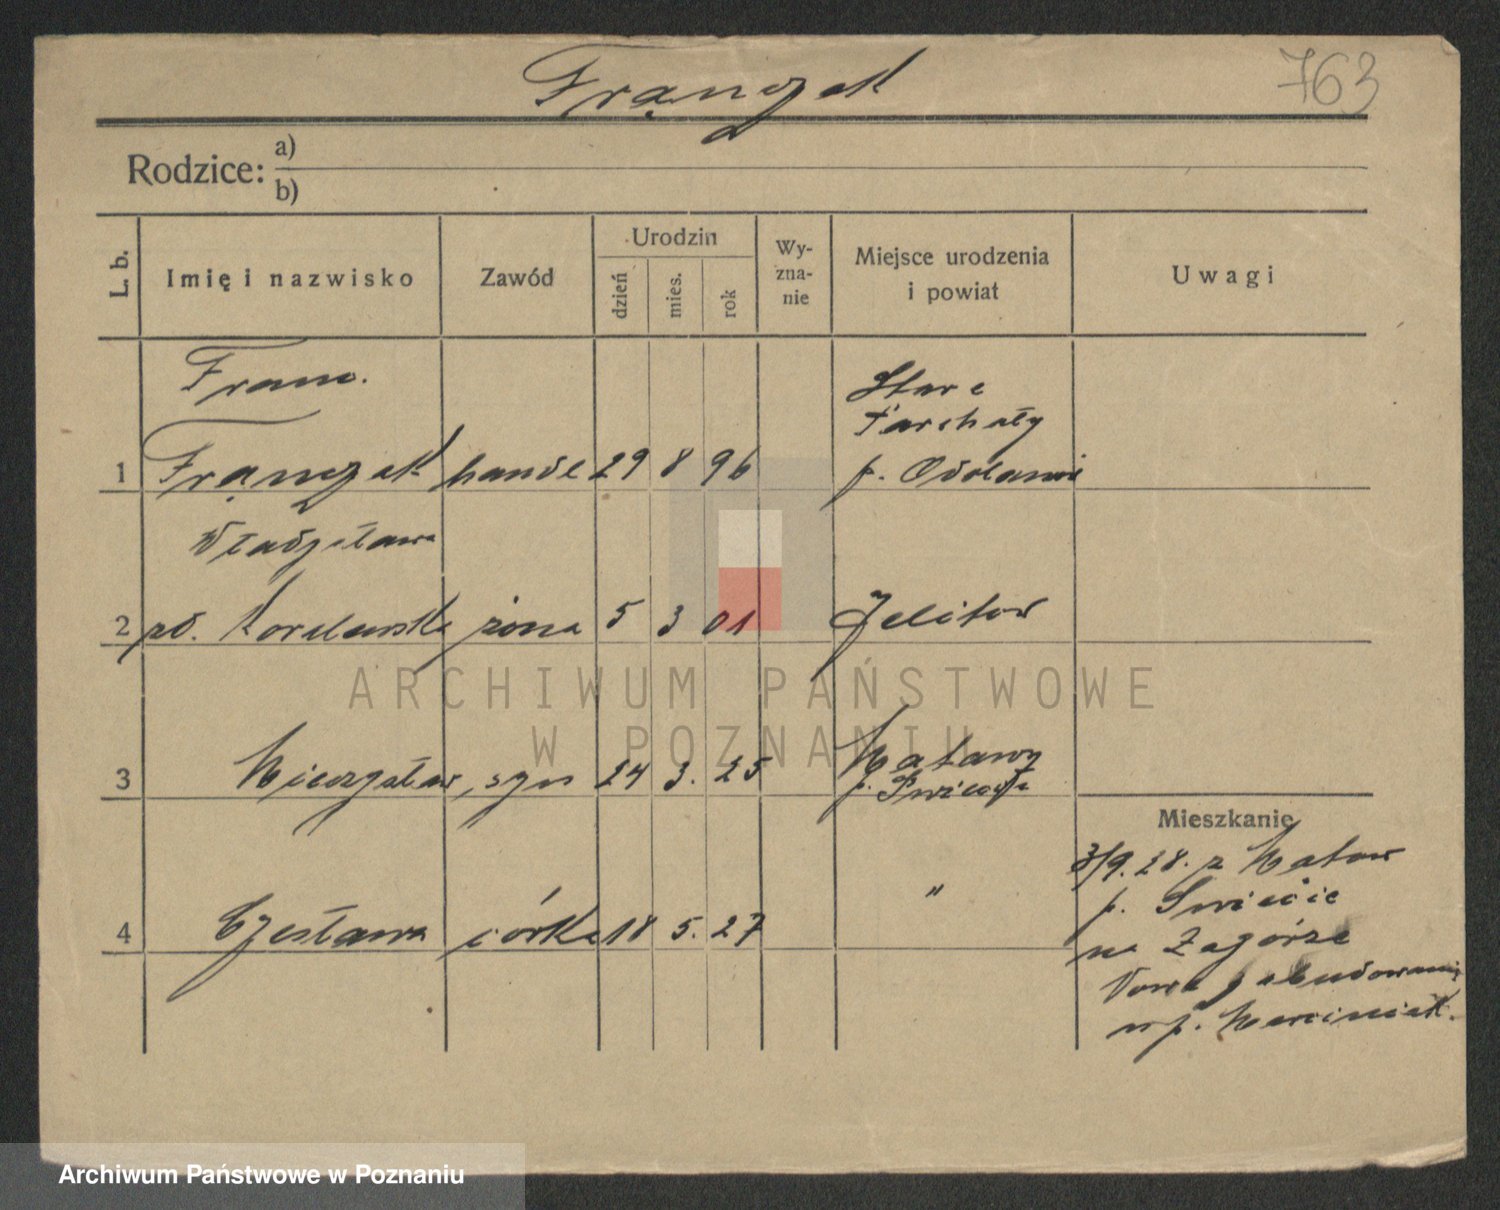 Frączak
763
Rodzice: a)
b)
L. b.
Imię i nazwisko
Zawód
Urodzin
dzień
mies.
rok
Wy-
zna-
nie
Miejsce urodzenia
i powiat
Uwagi
Franc.
Stare
Tarchały
1 handel 29 8 96 p. Odolanów
Władysława
2 zd. żona 5 3 01 Jelitów
3 Mieczysław, syn 24 3. 25 Matawy
p. Świecie
4 Czesława córka 18 5. 27 "
Mieszkanie
3/9. 28. z Mataw
p. Świecie
na Zagórze
w p. Marciniak.
ARCHIWUM PAŃSTWOWE
W POZNANIU
Archiwum Państwowe w Poznaniu